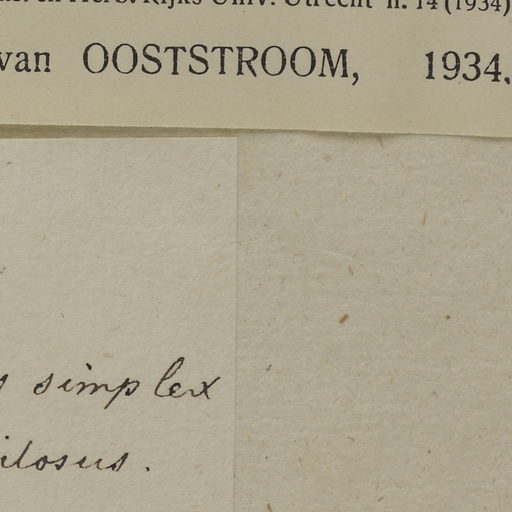 en Herb. Rijks Univ. Utrecht n. 14 (1934)
van OOSTSTROOM, 1934.
simplex
ilosus.